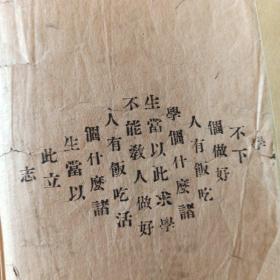 學
不下
個做好
人有飯吃
學個什麼諸
生當以此求學
不能教人做好
人有飯吃活
個什麼諸
生當以
此立
志